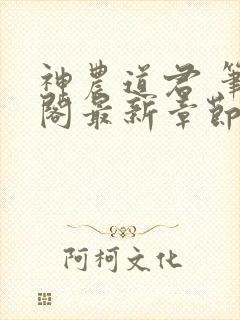 神農道君 筆
閣最新章節
阿柯文化